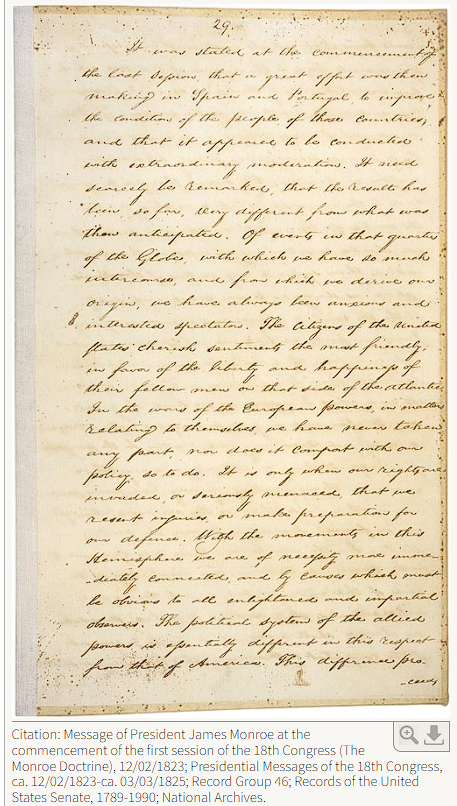 29.
It was stated at the commencement of
the last session, that a great effort was then
making in Spain and Portugal, to improve
the condition of the people of those countries,
and that it appeared to be conducted
with extraordinary moderation. It need
scarcely be remarked, that the result has
been, so far, very different from what was
then anticipated. Of events in that quarter
of the Globe, with which we have so much
intercourse, and from which we derive our
origin, we have always been anxious and
interested spectators. The citizens of the United
States cherish sentiments the most friendly,
in favor of the liberty and happiness of
their fellow men on that side of the Atlantic.
In the wars of the European powers, in matters
relating to themselves, we have never taken
any part, nor does it comport with our
policy, so to do. It is only when our rights are
invaded, or seriously menaced, that we
resent injuries, or make preparation for
our defence. With the movements in this
Hemisphere we are of necessity more imme-
-diately connected, and by causes which must
be obvious to all enlightened and impartial
observers. The political system of the allied
powers, is essentially different in this respect
from that of America. This difference pro-
-ceeds
Citation: Message of President James Monroe at the
commencement of the first session of the 18th Congress (The
Monroe Doctrine), 12/02/1823; Presidential Messages of the 18th Congress,
ca. 12/02/1823-ca. 03/03/1825; Record Group 46; Records of the United
States Senate, 1789-1990; National Archives.